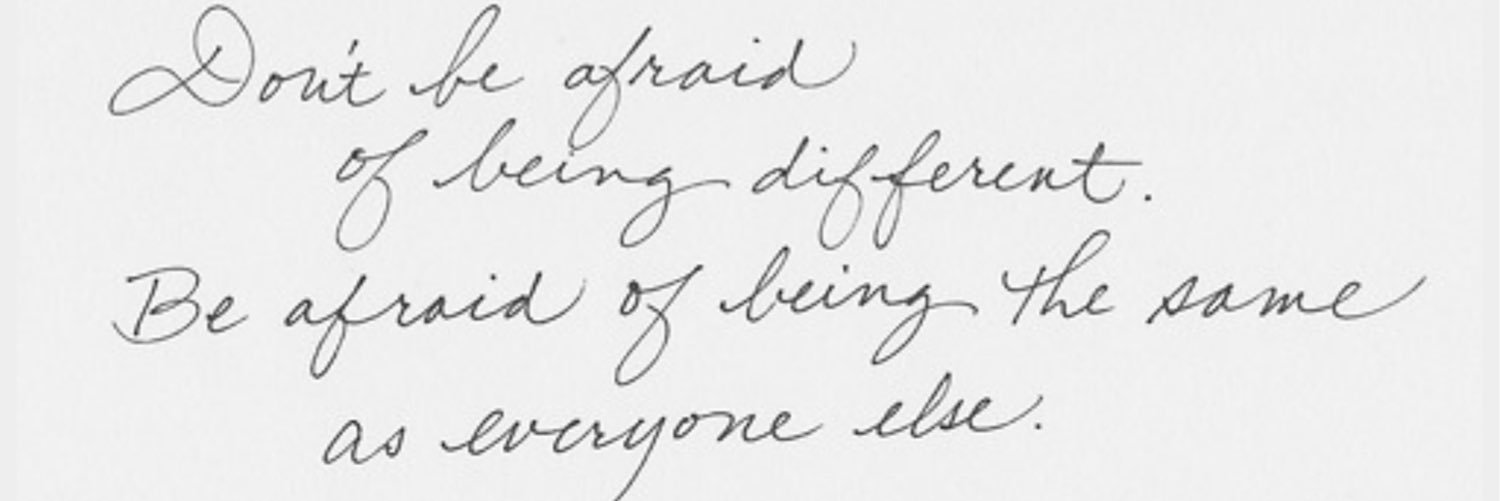 Don't be afraid
of being different.
Be afraid of being the same
as everyone else.